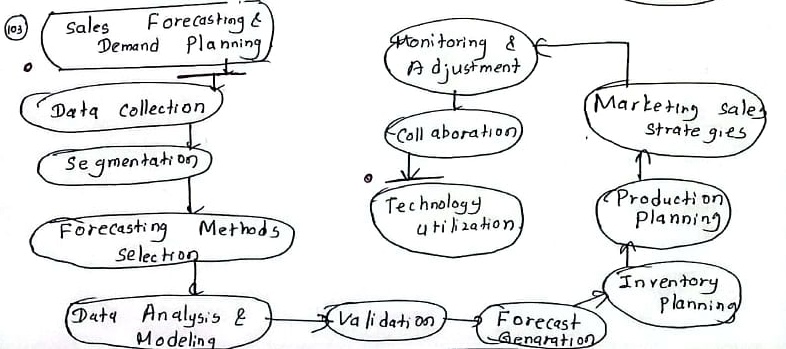 103
Sales Forecasting &
Demand Planning
Data collection
Segmentation
Forecasting Methods
Selection
Data Analysis &
Modeling
Validation
Forecast
Genaration
Inventory
Planning
Production
Planning
Marketing Sales
Strategies
Monitoring &
Adjustment
Collaboration
Technology
Utilization